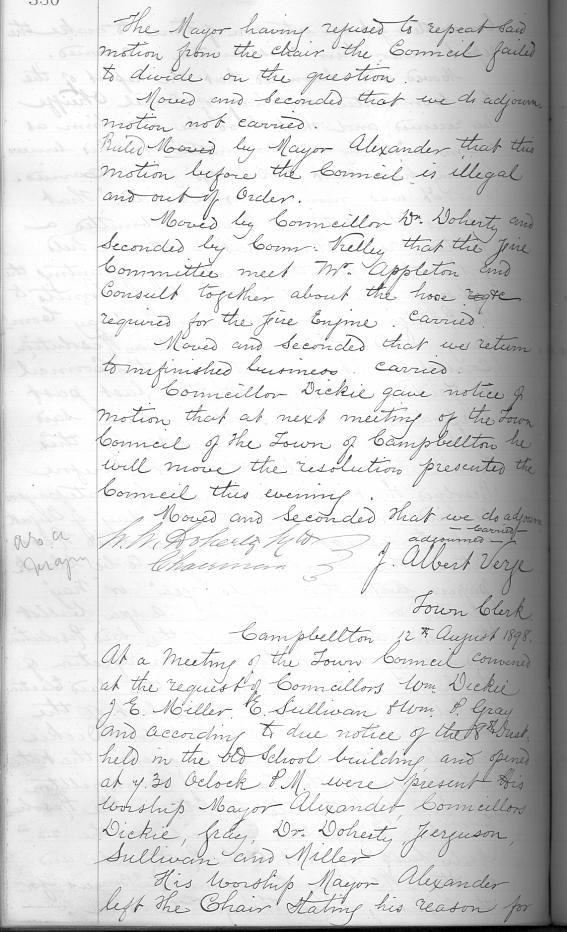 330
The Mayor having refused to repeat said
motion from the chair the Council failed
to divide on the question
Moved and seconded that we do adjourn
motion not carried.
Ruled Moved by Mayor Alexander that this
motion before the Council is illegal
and out of Order.
Moved by Councillor Dr. Doherty and
Seconded by Counr. Kelley that the Fire
Committee meet Mr. Appleton and
Consult together about the hose
required for the Fire Engine. Carried
Moved and Seconded that we return
to unfinished business. carried.
Councillor Dickie gave notice of
motion that at next meeting of the Town
Council of the Town of Campbellton he
will move the resolution presented the
Council this evening.
Moved and Seconded that we do adjourn
carried
adjourned
W. W. Doherty
Chairman
J. Albert Verge
Town Clerk
Campbellton 12th August 1898.
At a Meeting of the Town Council convened
at the request of Councillors Wm. Dickie
J E. Miller, E. Sullivan & Wm. P. Gray
and according to due notice of the 8th Inst.
held in the Old School building and opened
at 7.30 Oclock P.M. were present His
Worship Mayor Alexander, Councillors
Dickie, Gray, Dr. Doherty, Ferguson,
Sullivan and Miller
His Worship Mayor Alexander
left the Chair stating his reason for